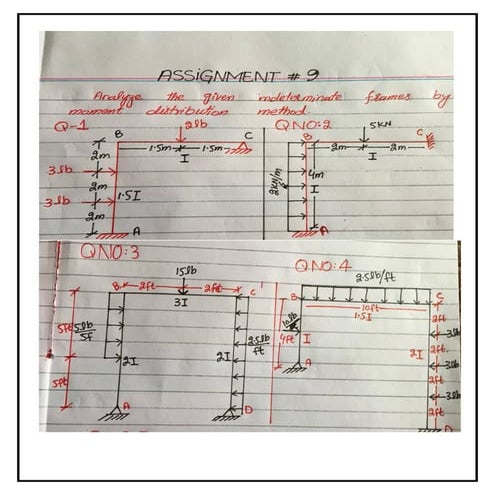 ASSIGNMENT # 9
Analyze the given indeterminate frames by
moment distribution method.
Q-1
B
2lb
C
1.5m
1.5m
I
2m
3lb
2m
3lb
2m
1.5I
A
QNO:2
5KN
B
C
2m
2m
I
4m
I
2KN/m
A
QNO:3
15lb
B
2ft
2ft
C
3I
5ft
5lb
5f
2I
2I
2.5lb
ft
5ft
A
D
QNO:4
2.5lb/ft
B
C
10ft
1.5I
2ft
10lb
4ft
I
3lb
2I
2ft
3lb
2ft
3lb
2ft
A
D